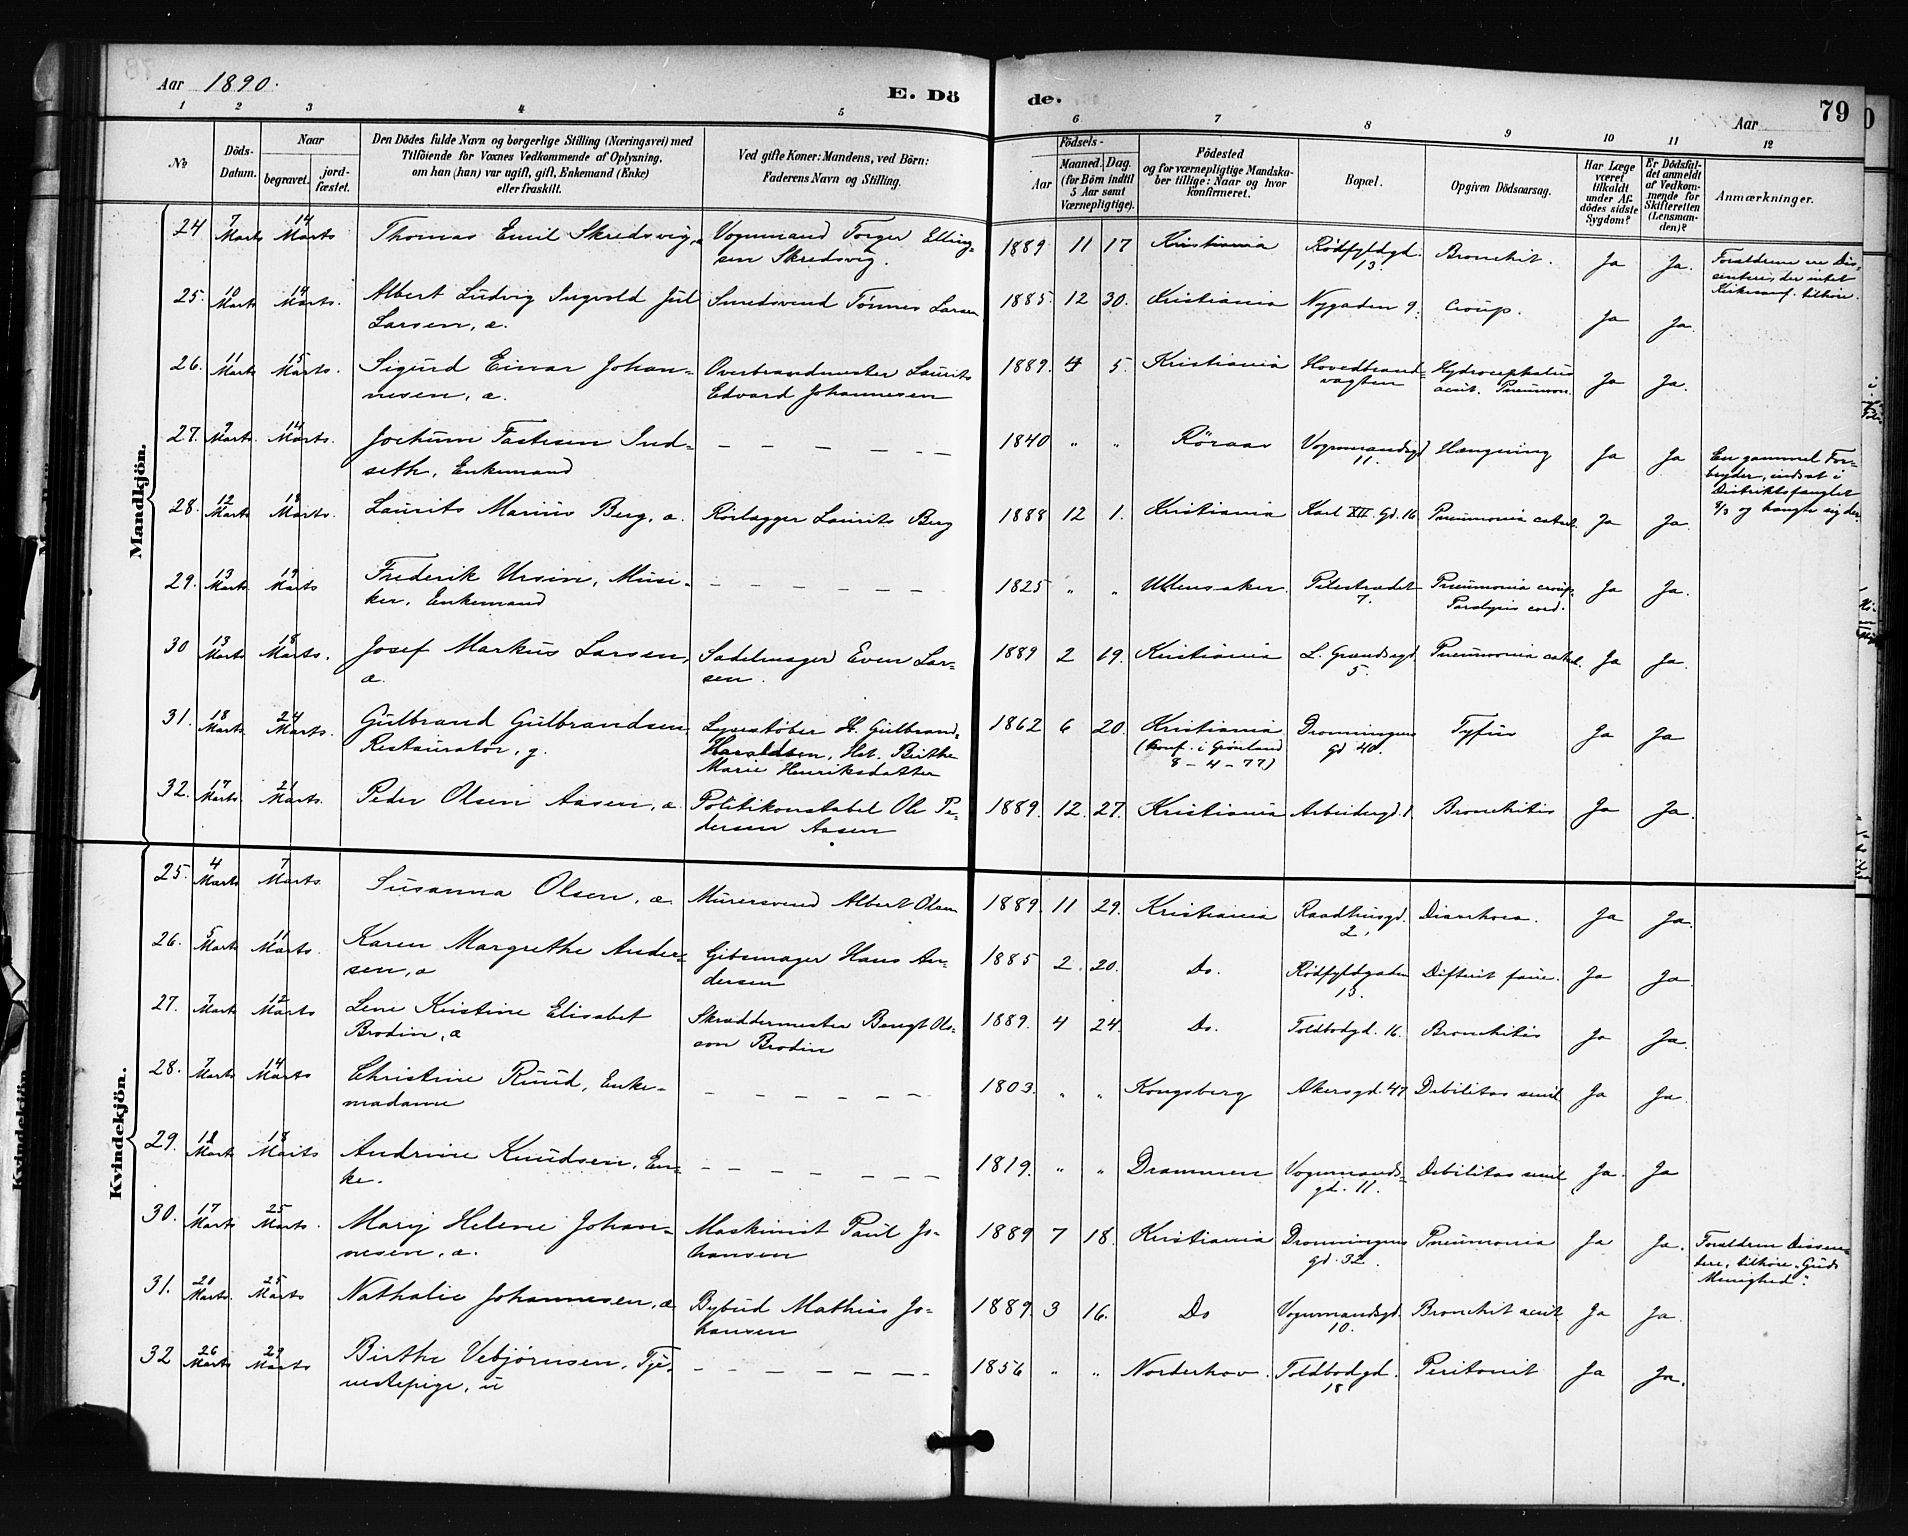 Aar 1890.
E. Döde.
Aar
79
1 2 3 4 5 6 7 8 9 10 11 12
No
Döds-Datum.
Naar
begravet.
jord-fæstet.
Den Dödes fulde Navn og borgerlige Stilling (Næringsvei) med
Tilföiende for Voxnes Vedkommende af Oplysning,
om han (hun) var ugift, gift, Enkemand (Enke)
eller fraskilt.
Ved gifte Koner: Mandens, ved Börn:
Faderens Navn og Stilling.
Födsels-
Aar
Maaned. Dag.
(for Börn indtil
5 Aar samt
Værnepligtige).
Födested
og for værnepligtige Mandska-
ber tillige: Naar og hvor
konfirmeret.
Bopæl.
Opgiven Dödsaarsag.
Har Læge
været
tilkaldt
under Af-
dödes sidste
Sygdom?
Er Dödsfal-
det anmeldt
af Vedkom-
mende for
Skifteretten
(Lensman-
den)?
Anmærkninger.
Mandkjön.
24 7 Marts 14 Marts Thomas Emil Skredsvig, æ Vognmand Torger Elling-
sen Skredsvig. 1889 11 17 Kristiania Rödfyldgd. 13. Bronchit. Ja Ja. Forældrene ere Dis-
centere, der intet
Kirkesamf. tilhöre.
25. 10 Marts 14 Marts. Albert Ludvig Ingvold Jul
Larsen, æ. Smedsvend Tönnes Larsen 1885. 12 30. Kristiania Nygaden 9. Croup. Ja Ja.
26. 11 Marts 15 Marts. Sigurd Einar Johan-
nesen, æ. Overbrandmester Laurits
Edvard Johannesen 1889. 4 5. Kristiania Hovedbrand-
vagten Hydrocephalus
acut. Pneumon. Ja Ja.
27. 9 Marts. 14 Marts. Jochum Fastesen Ind-
seth, Enkemand – – – – – – 1840 " " Röraas Vognmandsgd 11. Hængning Ja Ja En gammel For-
bryder, indsat i
Distriktsfængslet
9/3 og hængte sig der.
28. 12 Marts 18 Marts. Laurits Marius Berg, æ. Rörlægger Laurits Berg 1888 12 1. Kristiania Karl XII. Gd. 16 Pneumonia catarh. Ja Ja.
29. 13 Marts. 19 Marts Frederik Ursin, Musi-
ker, Enkemand – – – – – – 1825 " " Ullensaker. Pilestrædet 7. Pneumonia croup.
Paralysis cord. Ja Ja.
30 13 Marts 18 Marts. Josef Markus Larsen,
æ. Sadelmager Even Lar-
sen. 1889 2 19. Kristiania L. Grændsegd. 5. Pneumonia catarh. Ja Ja.
31. 18 Marts. 24 Marts. Gulbrand Gulbrandsen,
Restauratör, g. Lysestøber H. Gulbrand
Haraldsen, Hst. Birthe
Marie Henriksdatter 1862 6 20. Kristiania
(Conf. i Grönland
8 – 4 – 77) Dronningens
Gd 40. Tyfus Ja Ja
32. 17 Marts. 21 Marts. Peder Olsen Aasen, æ. Politikonstabel Ole Pe-
dersen Aasen 1889. 12. 27. Kristiania Arbeidergd. 1. Bronchitis Ja Ja.
Kvindekjön.
25. 4 Marts 7 Marts. Susanna Olsen, æ. Murersvend Albert Olsen 1889. 11 29. Kristiania Raadhusgd. 2. Diarrhoea. Ja Ja.
26. 5 Marts 11 Marts. Karen Margrethe Ander-
sen, æ Gibsmager Hans An-
dersen 1885 2. 20. Do. Rödfyldgaden
15. Difterit fauc. Ja Ja.
27. 7 Marts 12 Marts Lene Kristine Elisabet
Brodin, æ Skræddermester Bengt Ols-
son Brodin 1889. 4 24. Do. Toldbodgd. 16. Bronchitis Ja Ja.
28. 7 Marts 14 Marts Christine Ruud, Enke-
madame – – – – – – 1803. " " Kongsberg Akersgd. 47 Debilitas senil Ja Ja.
29. 12 Marts 18 Marts Andrine Knudsen, En-
ke. – – – – – – 1819. " " Drammen Vognmands-
gd. 11. Debilitas senil Ja. Ja
30. 17 Marts 25 Marts. Mary Helene Johan-
nesen, æ. Maskinist Paul Jo-
hansen 1889 7 18. Kristiania Dronningens
gd. 32. Pneumonia Ja Ja. Forældrene Dissen-
tere, tilhöre "Guds
Menighed".
31. 20 Marts. 25 Marts Nathalie Johannesen, æ Bybud Mathias Jo-
hansen 1889. 3 16. Do Vognmandsgd.
10. Bronchit acut Ja Ja.
32 26 Marts 29 Marts Birthe Vebjörnsen, Tje-
nestepige, u – – – – – – 1856 " " Norderhov. Toldbodgd.
18 Peritonit Ja Ja.